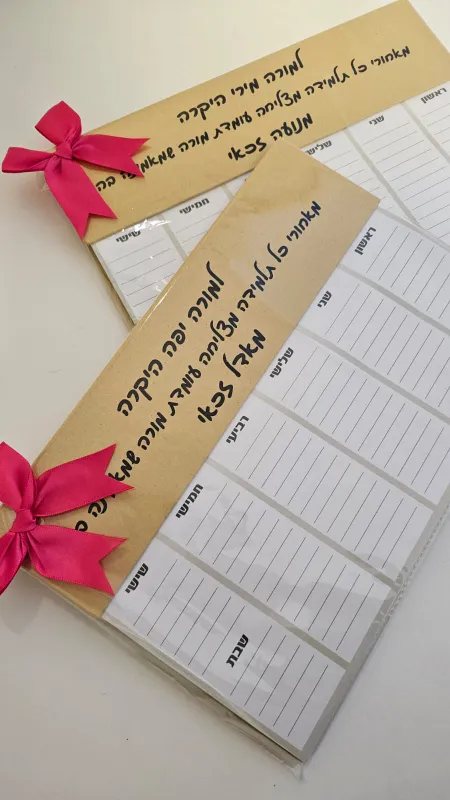 למורה מירי היקרה
מאחורי כל תלמידה מצליחה עומדת מורה שמאמינה בה
מנועה זכאי
ראשון
שני
שלישי
חמישי
שישי
למורה יפה היקרה
מאחורי כל תלמידה מצליחה עומדת מורה
מאדל זכאי
ראשון
שני
שלישי
רביעי
חמישי
שישי
שבת